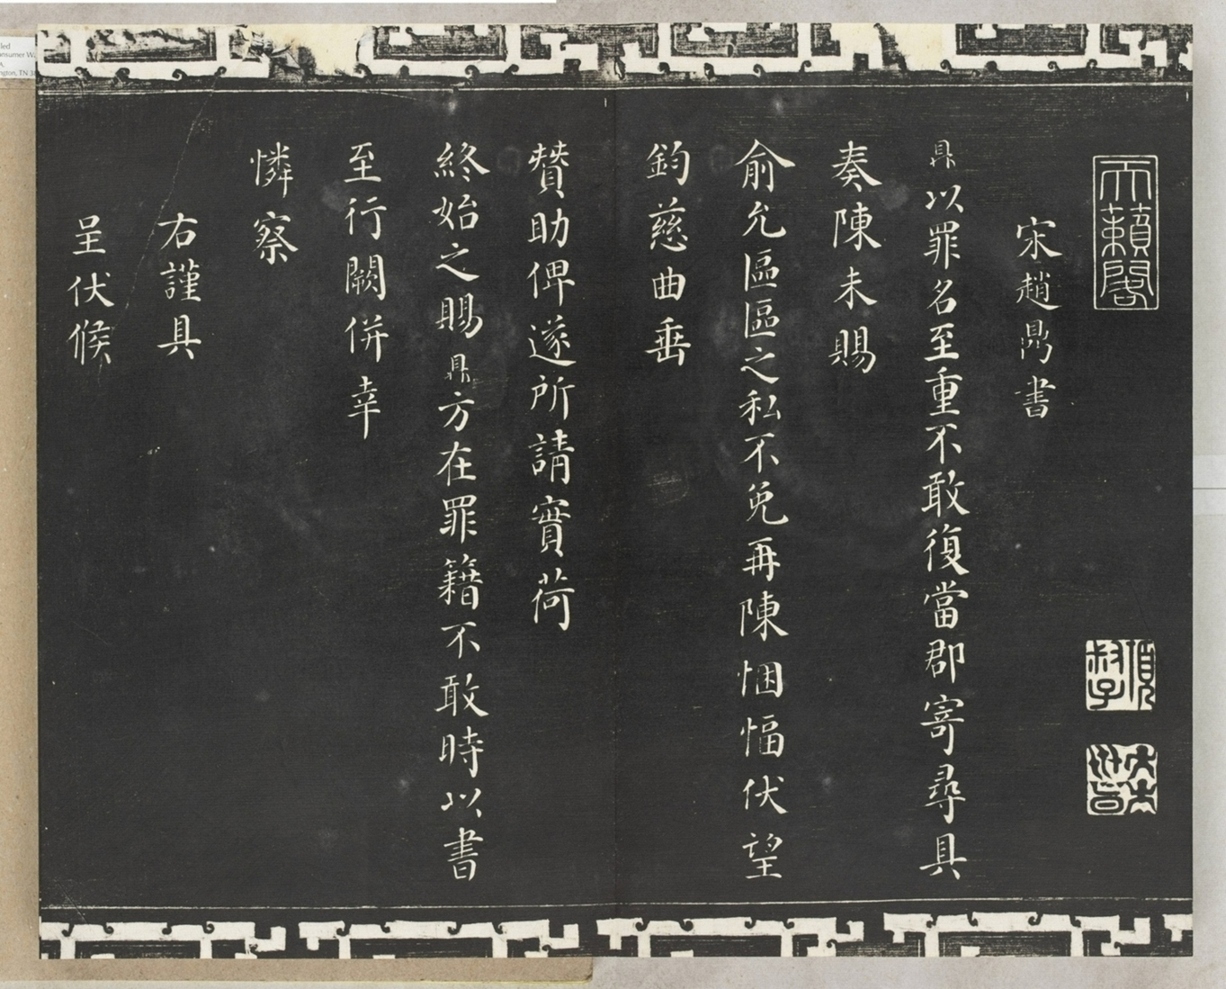 天籟閣
項叔子
宋趙鼎書
鼎以罪名至重不敢復當郡寄尋具
奏陳未賜
俞允區區之私不免再陳悃愊伏望
鈞慈曲垂
贊助俾遂所請實荷
終始之賜鼎方在罪籍不敢時以書
至行闕併幸
憐察
右謹具
呈伏候